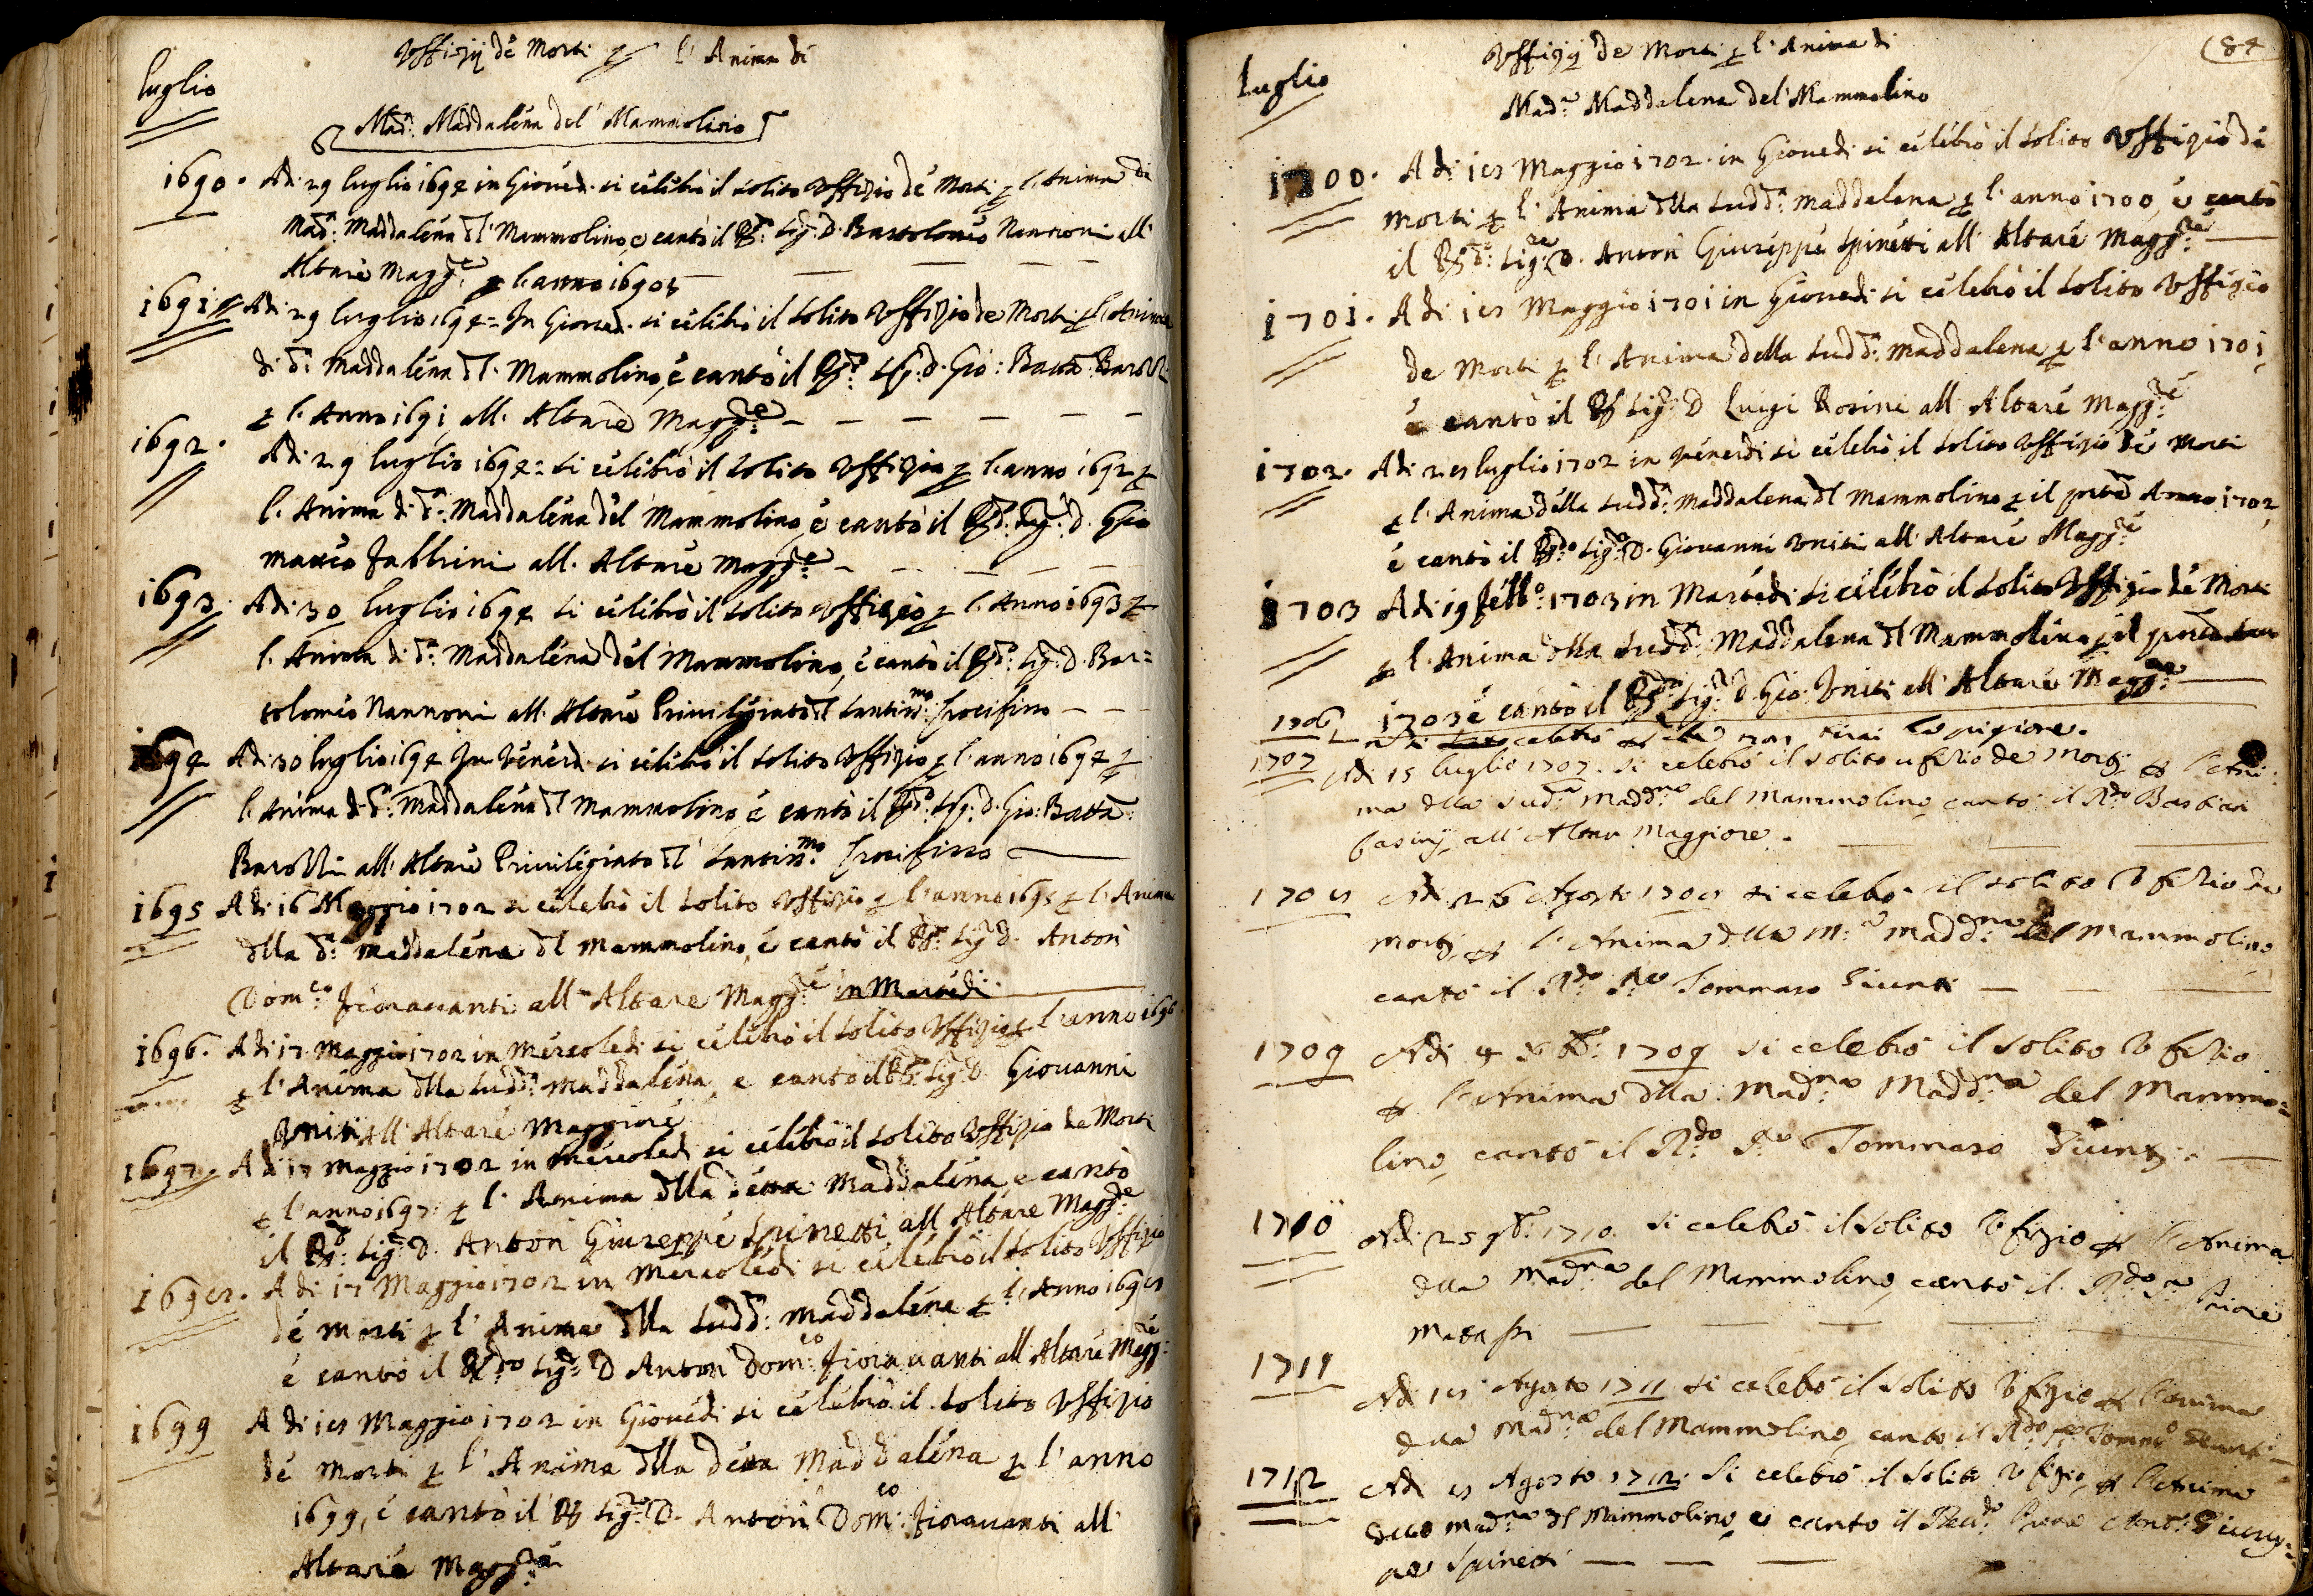 luglio
Uffizij de Morti p l'Anima di
Mad.ª Maddalena del Mammolino
1690. Adi 29 luglio 1694 in Gioved. si celebrò il solito Uffizio de Morti p l'Anima di
Mad.ª Maddalena dl Mammolino, e cantò il Rd.º Sig. D. Bartolomeo Nannoni all'
Altare Magg.re p l'anno 1690
1691 Adi 29 luglio 1694 = In Gioved. si celebrò il solito Uffizio de Morti p l'Anima
di d.ª Maddalena dl Mammolino, e cantò il Rd.º Sig. d. Gio: Batta
p l'Anno 1691 all'Altare Magg.re
1692. Adi 29 luglio 1694 = si celebrò il solito Uffizio p l'anno 1692 p
l'Anima di d.ª Maddalena del Mammolino, e cantò il Rd.º Sig. D. Gio
Fabbrini all'Altare Magg.re
1693. Adi 30 luglio 1694 si celebrò il solito Uffizio p l'Anno 1693 p
l'Anima di d.ª Maddalena del Mammolino, e cantò il Rd.º Sig. D. Bar=
tolomeo Nannoni all'Altare Privilegiato dl Santiss.mo Crocifisso
1694 Adi 30 luglio 1694 In Venerd. si celebrò il solito Uffizio p l'anno 1694 p
l'Anima di d.ª Maddalena dl Mammolino, e cantò il Rd.º Sig. D. Gio: Batta
all'Altare Privilegiato dl Santiss.mo Crocifisso
1695 Adi 16 Maggio 1702 si celebrò il solito Uffizio p l'anno 1695 p l'Anima
dlla d.ª Maddalena dl Mammolino, e cantò il Rd.º Sig. D. Anton
Dom.co Fioravanti all'Altare Magg.re in Martedi
1696. Adi 17 Maggio 1702 in Mercoledi si celebrò il solito Uffizio p l'anno 1696
p l'Anima dlla Sudd.ª Maddalena, e cantò il Rd.º Sig. D. Giovanni
Uniti all'Altare Maggiore
1697. Adi 17 Maggio 1702 in Mercoledi si celebrò il solito Uffizio de Morti
p l'anno 1697 p l'Anima dlla detta Maddalena, e cantò
il Rd.º Sig. D. Anton Giuseppe Spinetti all'Altare Magg.re
1698. Adi 17 Maggio 1702 in Mercoledi si celebrò il solito Uffizio
de Morti p l'Anima dlla Sudd.ª Maddalena p l'Anno 1698
e cantò il Rdo Sig. D Anton Dom.co Fioravanti all'Altare Magg.re
1699 Adi 18 Maggio 1702 in Giovedi si celebrò il solito Uffizio
de Morti p l'Anima dlla detta Maddalena p l'anno
1699, e cantò il Rd Sig. D. Anton Dom.co Fioravanti all'
Altare Magg.re
84
luglio
Uffizij de Morti p l'Anima di
Mad.ª Maddalena del Mammolino
1700. Adi 18 Maggio 1702. in Giovedi si celebrò il solito Uffizio de
morti p l'Anima dlla Sudd.ª Maddalena p l'anno 1700, e cantò
il Rd.º Sig.re D. Anton Giuseppe Spinetti all'Altare Magg.re
1701. Adi 18 Maggio 1701 in Giovedi si celebrò il solito Uffizio
de Morti p l'Anima della Sudd.ª Maddalena p l'anno 1701,
e cantò il Rd Sig. D Luigi Rosini all'Altare Magg.re
1702. Adi 28 luglio 1702 in Venerdi si celebrò il solito Uffizio de Morti
p l'Anima della Sudd.ª Maddalena dl Mammolino p il Anno 1702,
e cantò il Rd.º Sig. D. Giovanni Uniti all'Altare Magg.re
1703 Adi 19 1703 in Martedi si celebrò il solito Uffizio de Morti
p l'Anima dlla Sudd.ª Maddalena dl Mammolino p il
1703 e cantò il Rd.º Sig. D. Gio. Uniti all'Altare Magg.re
1706 si celebrò
1707 Adi 15 luglio 1707. si celebrò il solito ufizio de Morti p l'Ani:
ma dlla Sud.ª Madd.na del Mammolino, cantò il R.do Bastian
all'Altare Maggiore.
1708 Adi 26 Agosto 1708 si celebrò il solito Ufizio de
Morti, p l'Anima dlla M.ª Madd.na del Mammolino
cantò il R.do S.re Tommaso Giunti
1709 Adi 4 1709 si celebrò il solito Ufizio
p l'Anima dlla Mad.na Madd.na del Mammo=
lino, cantò il R.do S.re Tommaso Giunti
1710 Adi 25 1710. si celebrò il solito Ufizio p l'Anima
dlla Mad.na del Mammolino, cantò il R.do S.re Priore
Matassi
1711 Adi 18 Agosto 1711 si celebrò il solito Ufizio p l'Anima
dlla Mad.na del Mammolino, cantò il R.do S.re Giunti
1712 Adi 8 Agosto 1712. si celebrò il solito Ufizio, p l'Anima
Mad.na dl Mammolino e cantò il Rev.do Ant.º Giusep=
Spinetti